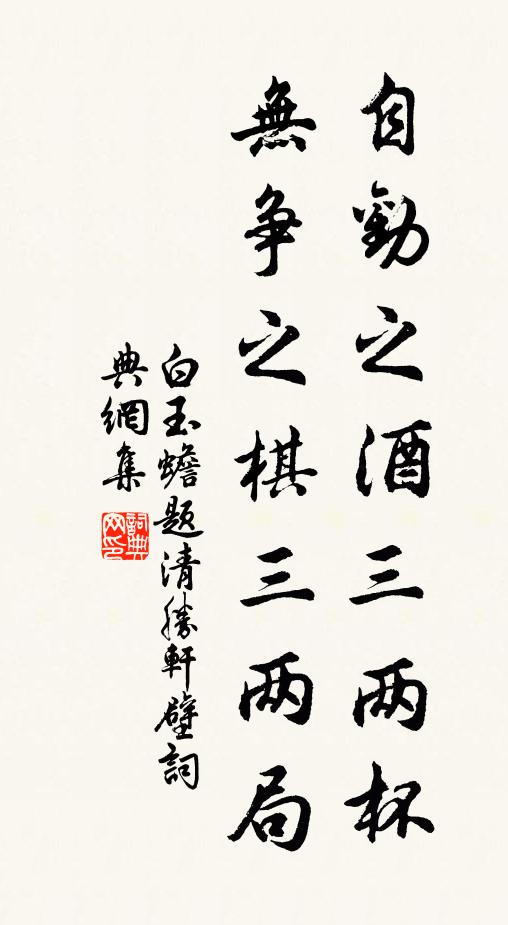 自勸之酒三两杯
無争之棋三两局
白玉蟾題清勝軒壁詞
典網集
詞典網印